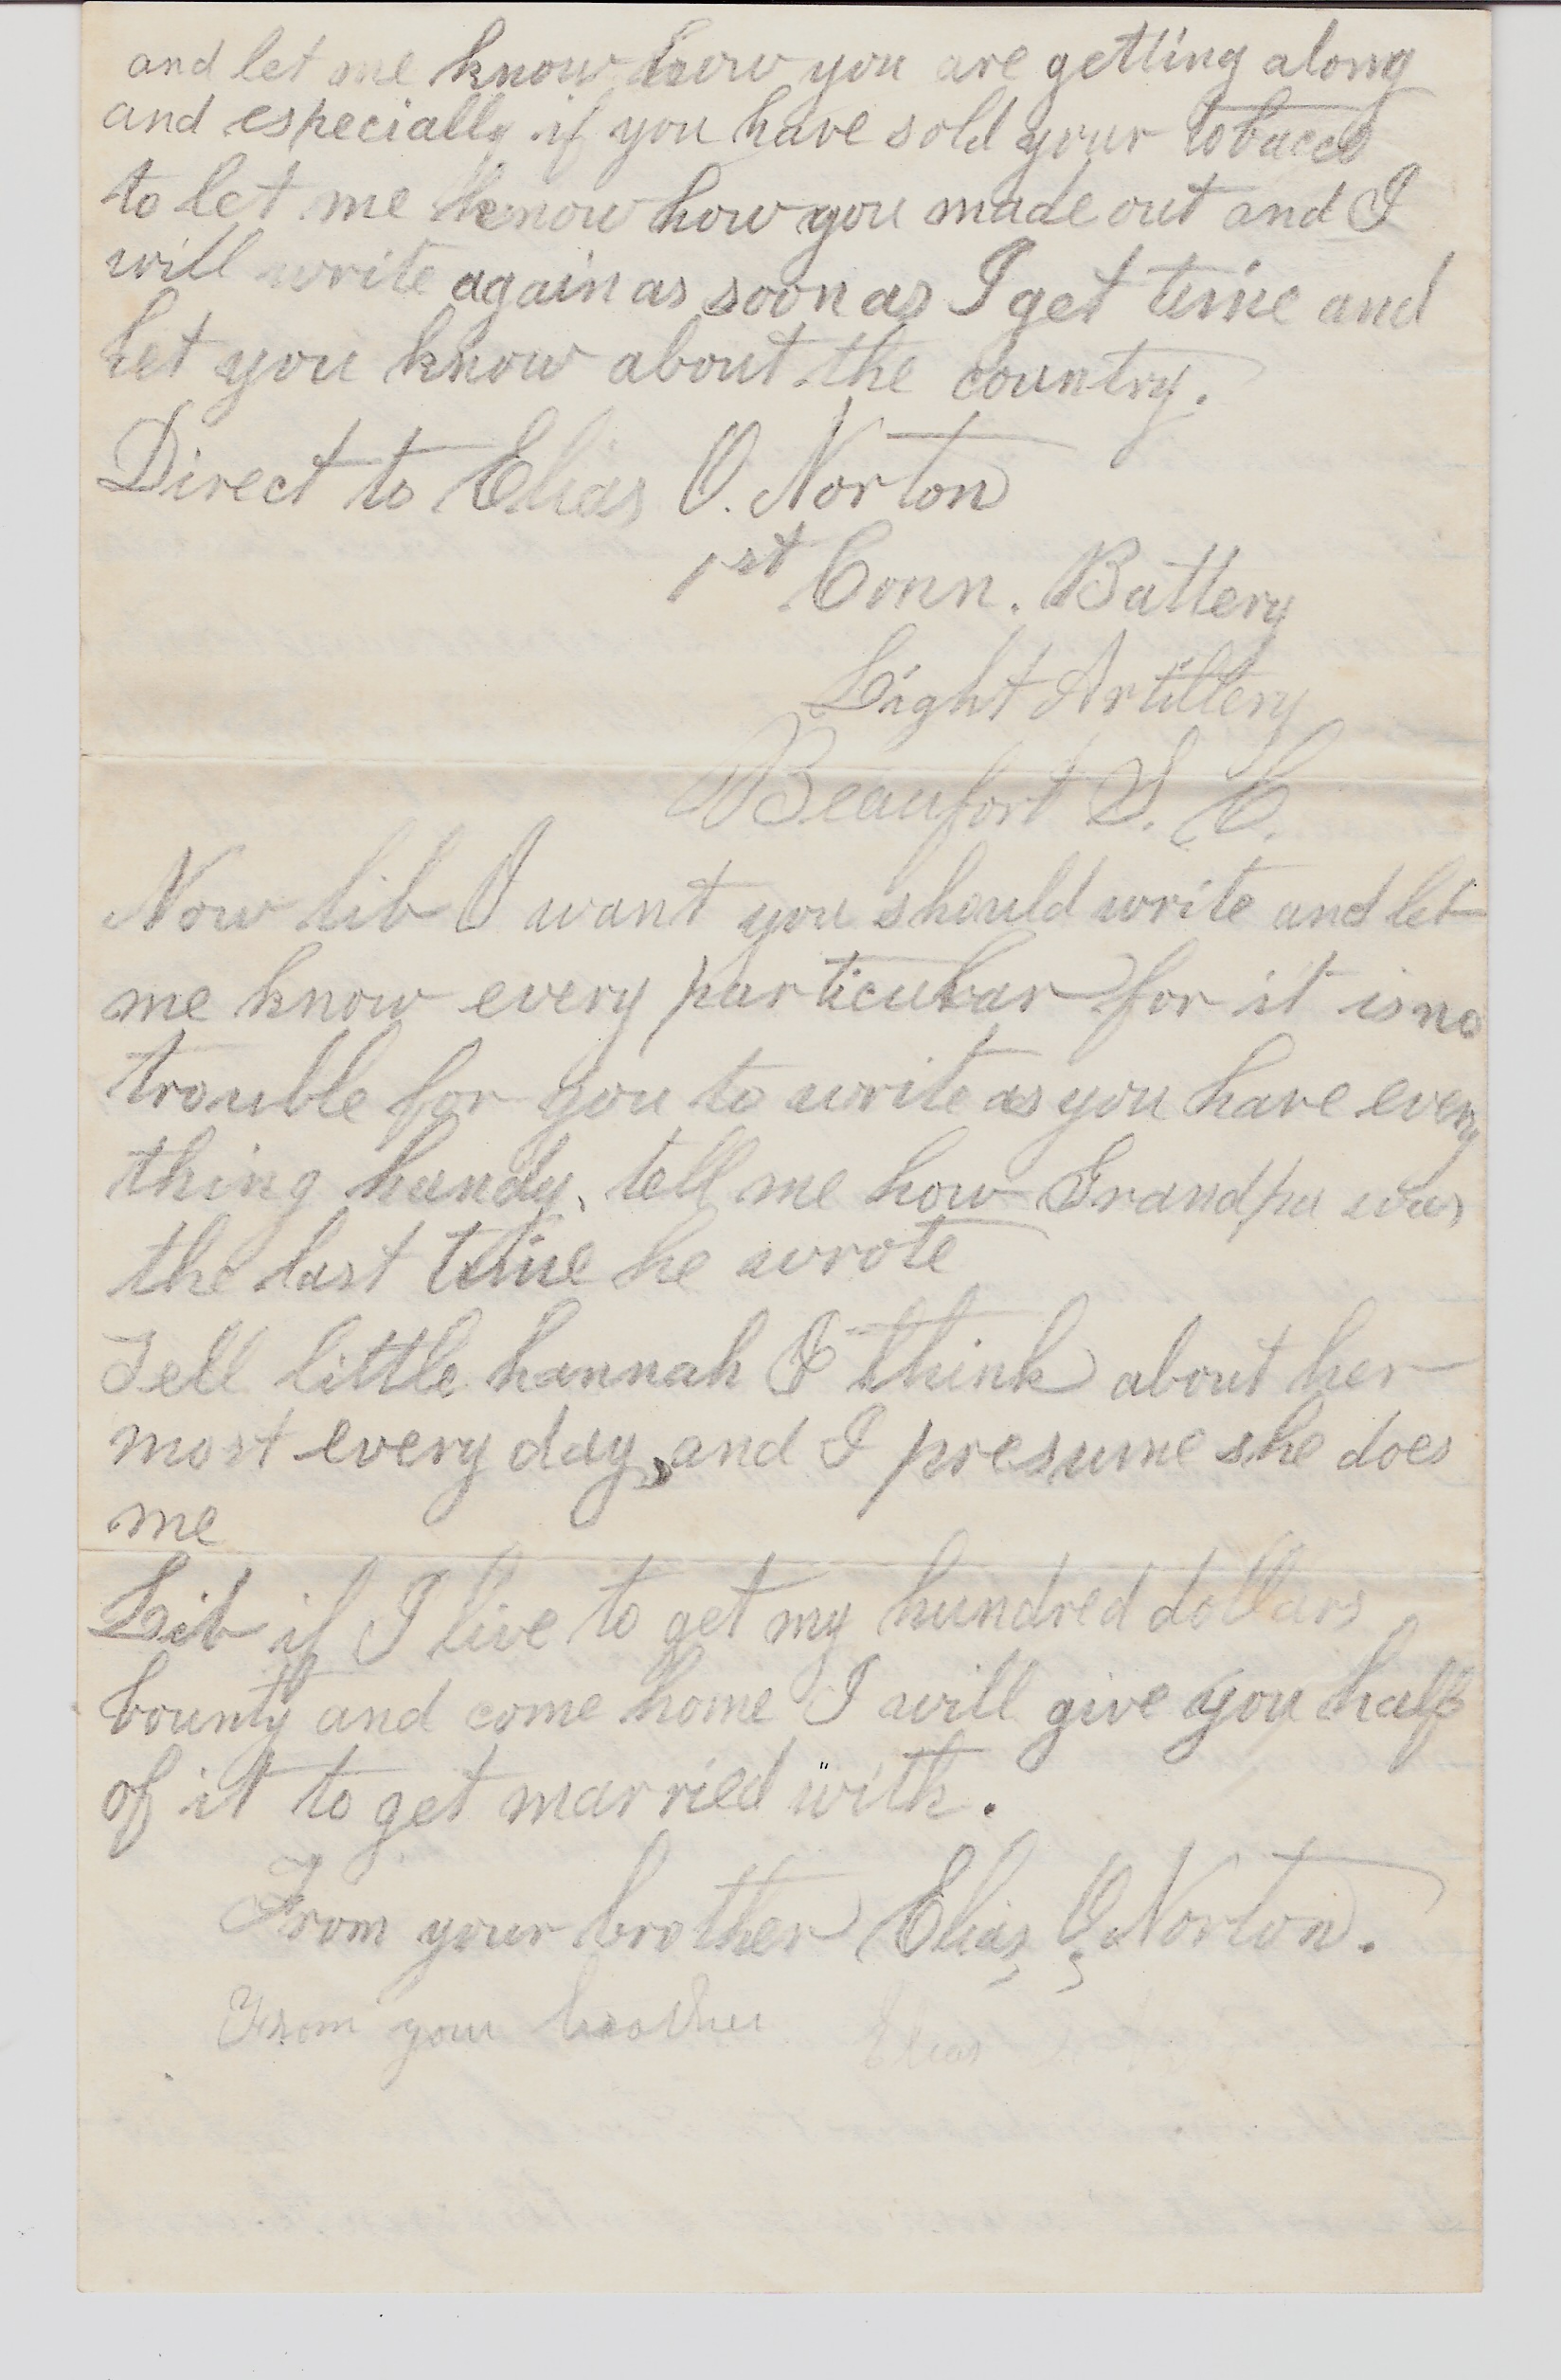 and let me know how you are getting along
and especially if you have sold your tobacco
to let me know how you made out and I
will write again as soon as I get time and
let you know about the country.
Direct to Elias O. Norton
1st Conn. Battery
Light Artillery
Beaufort S. C.
Now lib I want you should write and let
me know every particular for it is no
trouble for you to write as you have every
thing handy, tell me how Grandpa was
the last time he wrote
Tell little hannah I think about her
most every day, and I presume she does
me
Lib if I live to get my hundred dollars
bounty and come home I will give you half
of it to get married with.
From your brother Elias O. Norton.
From your brother Elias